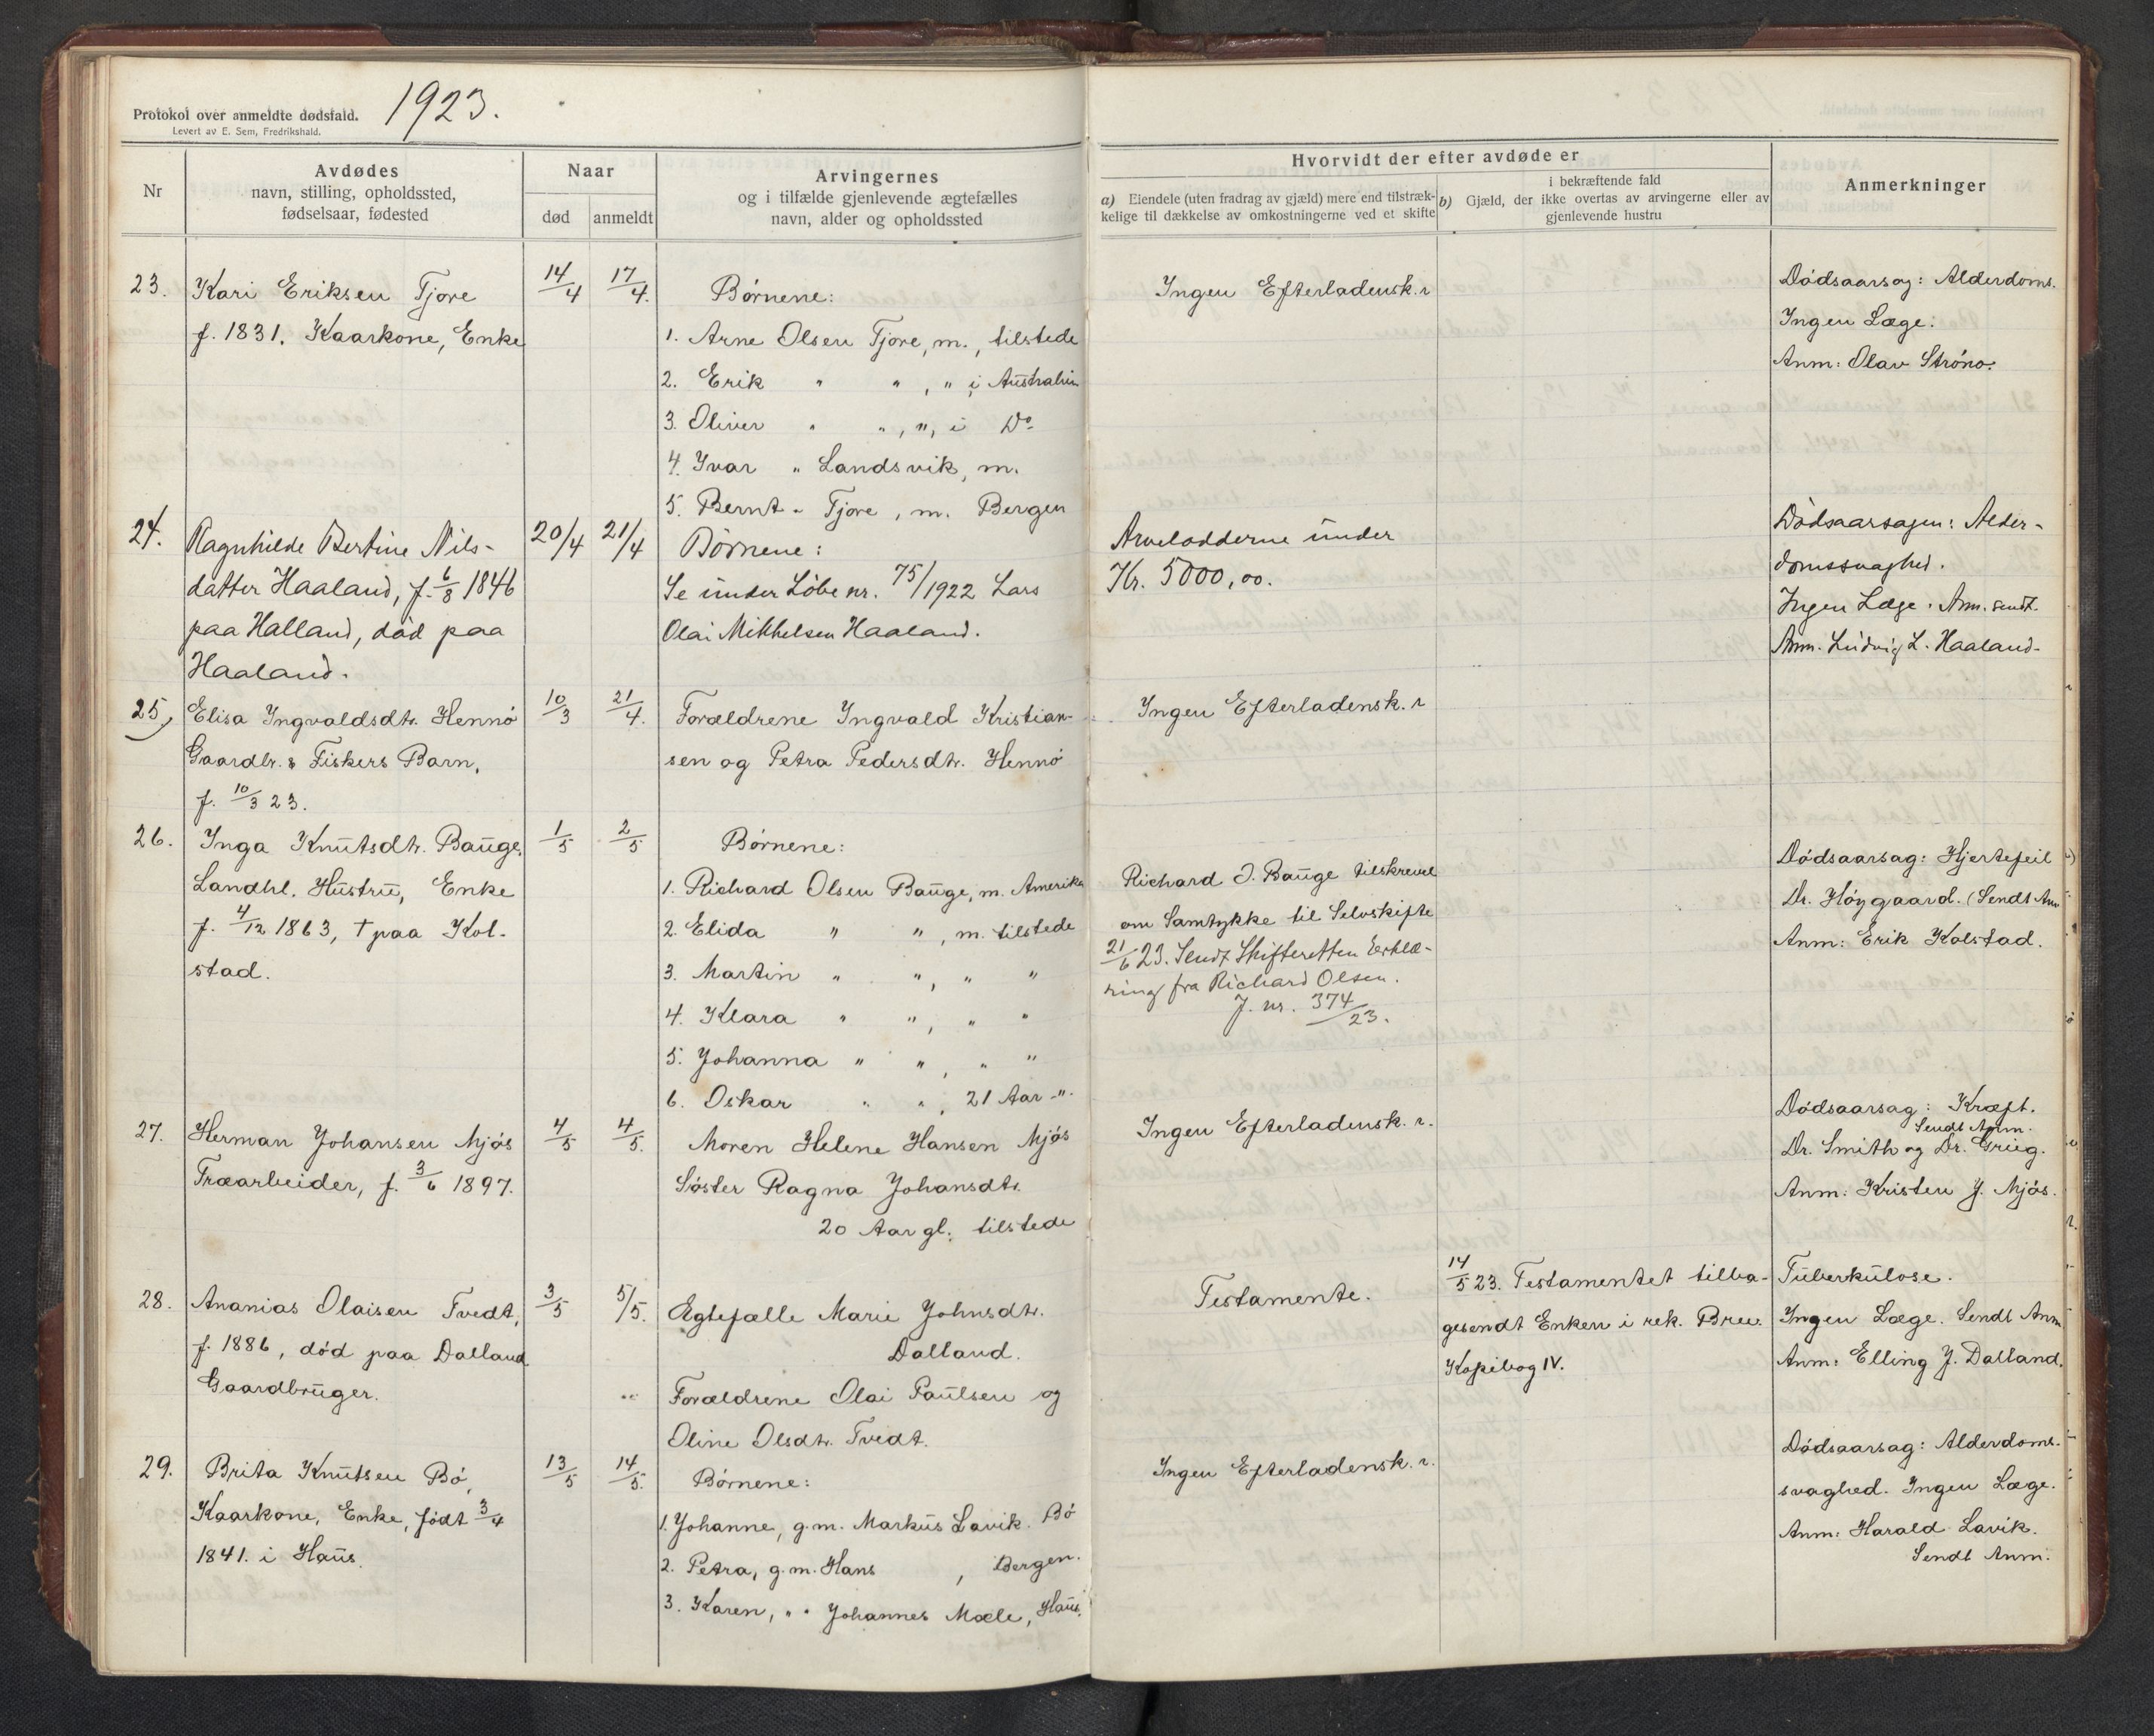 1923.
Protokol over anmeldte dødsfald.
Levert av E. Sem, Fredrikshald.
Nr
Avdødes
navn, stilling, opholdssted,
fødselsaar, fødested
Naar
død
anmeldt
Arvingernes
og i tilfælde gjenlevende ægtefælles
navn, alder og opholdssted
Hvorvidt der efter avdøde er
a) Eiendele (uten fradrag av gjæld) mere end tilstræk-
kelige til dækkelse av omkostningerne ved et skifte
i bekræftende fald
b) Gjæld, der ikke overtas av arvingerne eller av
gjenlevende hustru
Anmerkninger
23.
Kari Eriksen Tjore
f. 1831. Kaarkone, Enke
14/4
17/4.
Børnene:
1. Arne Olsen Tjore, m., tilstede
2. Erik " " , " i Australien
3. Oliver " " , ", i Do
4. Ivar " Landsvik, m.
5. Bernt " Tjore, m. Bergen
Ingen Efterladensk. r
Dødsaarsag: Alderdoms.
Ingen Læge.
Anm: Olav Strøno.
24.
Ragnhilde Bertine Nils-
datter Haaland, f. 6/8 1846
paa Halland, død paa
Haaland.
20/4
21/4
Børnene:
Se under Løbe nr. 75/1922 Lars
Olai Mikkelsen Haaland.
Arvelodderne under
Kr. 5000,00.
Dødsaarsagen: Alder-
domssvaghed.
Ingen Læge. Anm. sendt.
Anm. Ludvig L. Haaland.
25,
Elisa Ingvaldsdtr. Hennø
Gaardbr. & Fiskers Barn,
f. 10/3 23.
10/3
21/4.
Forældrene Ingvald Kristian-
sen og Petra Pedersdtr. Hennø
Ingen Efterladensk. r
26.
Inga Knutsdtr. Bauge,
Landhl. Hustru, Enke
f. 4/12 1863, † paa Kol-
stad.
1/5
2/5
Børnene:
1. Richard Olsen Bauge, m. Amerika
2. Elida " " , m. tilstede
3. Martin " " , " "
4. Klara " " , " "
5. Johanna " " , " "
6. Oskar " " , 21 Aar "
Richard J. Bauge tilskrevet
om Samtykke til Selvskifte
21/6 23. Sendt Skifteretten Erklæ-
ring fra Richard Olsen.
J. nr. 374/23.
Dødsaarsag: Hjertefeil
Dr. Høygaard. (Sendt Anm
Anm: Erik Kolstad.
27.
Herman Johansen Mjøs
Træarbeider, f. 3/6 1897.
4/5
4/5.
Moren Helene Hansen Mjøs
Søster Ragna Johansdtr.
20 Aar gl. tilstede
Ingen Efterladensk. r.
Dødsaarsag: Kræft.
Sendt Anm.
Dr. Smith og Dr. Grieg.
Anm: Kristen J. Mjøs.
28.
Ananias Olaisen Tvedt,
f. 1886, død paa Dalland
Gaardbruger.
3/5
5/5.
Egtefælle Marie Johnsdtr.
Dalland.
Forældrene Olai Paulsen og
Oline Olsdtr. Tvedt.
Testamente.
14/5 23. Testamentet tilba-
gesendt Enken i rek. Brev.
Kopibog IV.
Tuberkulose.
Ingen Læge. Sendt Anm
Anm: Elling J. Dalland.
29.
Brita Knutsen Bø,
Kaarkone, Enke, født 3/4
1841. i Haus.
13/5
14/5.
Børnene:
1. Johanne, g.m. Markus Lavik. Bø
2. Petra, g.m. Hans , Bergen.
3. Karen, " " Johannes Mæle, Haus.
Ingen Efterladensk. r.
Dødsaarsag: Alderdoms-
svaghed. Ingen Læge.
Anm: Harald Lavik.
Sendt Anm.